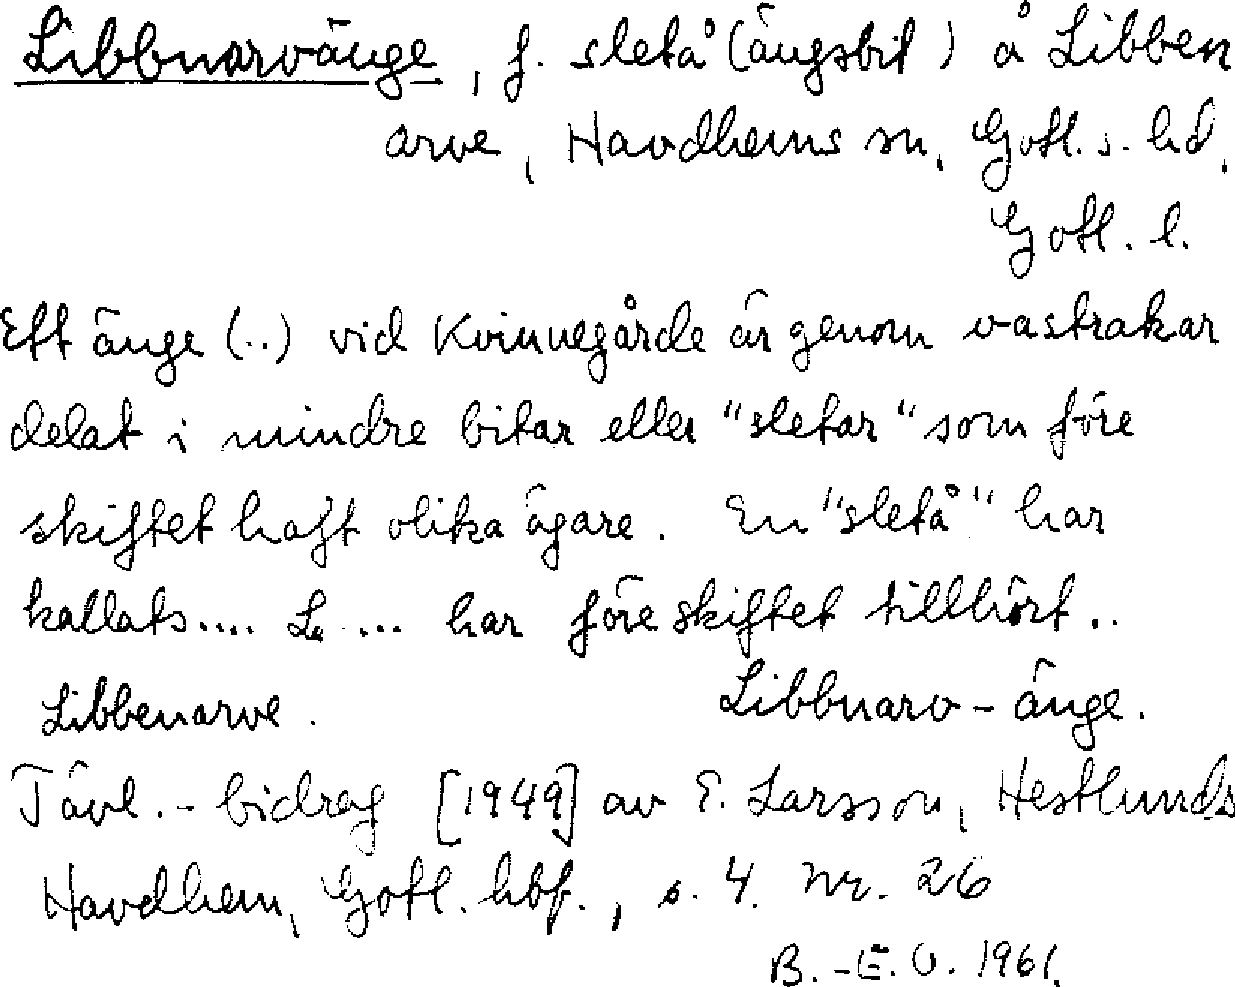 Libbnarvänge, f. sletå (ängsbit) å Libben
arve, Havdhems sn, Gotl. s. hd.
Gotl. l.
Ett änge (..) vid Kvinnegårde är genom vastrakar
delat i mindre bitar eller "sletar" som före
skiftet haft olika ägare. En "sletå" har
kallats.... L. ... har före skiftet tillhört..
Libbenarve. Libbnarv-änge.
Tävl.-bidrag [1949] av E. Larsson, Hestlunds
Havdhem, Gotl. hbf., s. 4. nr. 26
B.-E.O. 1961.